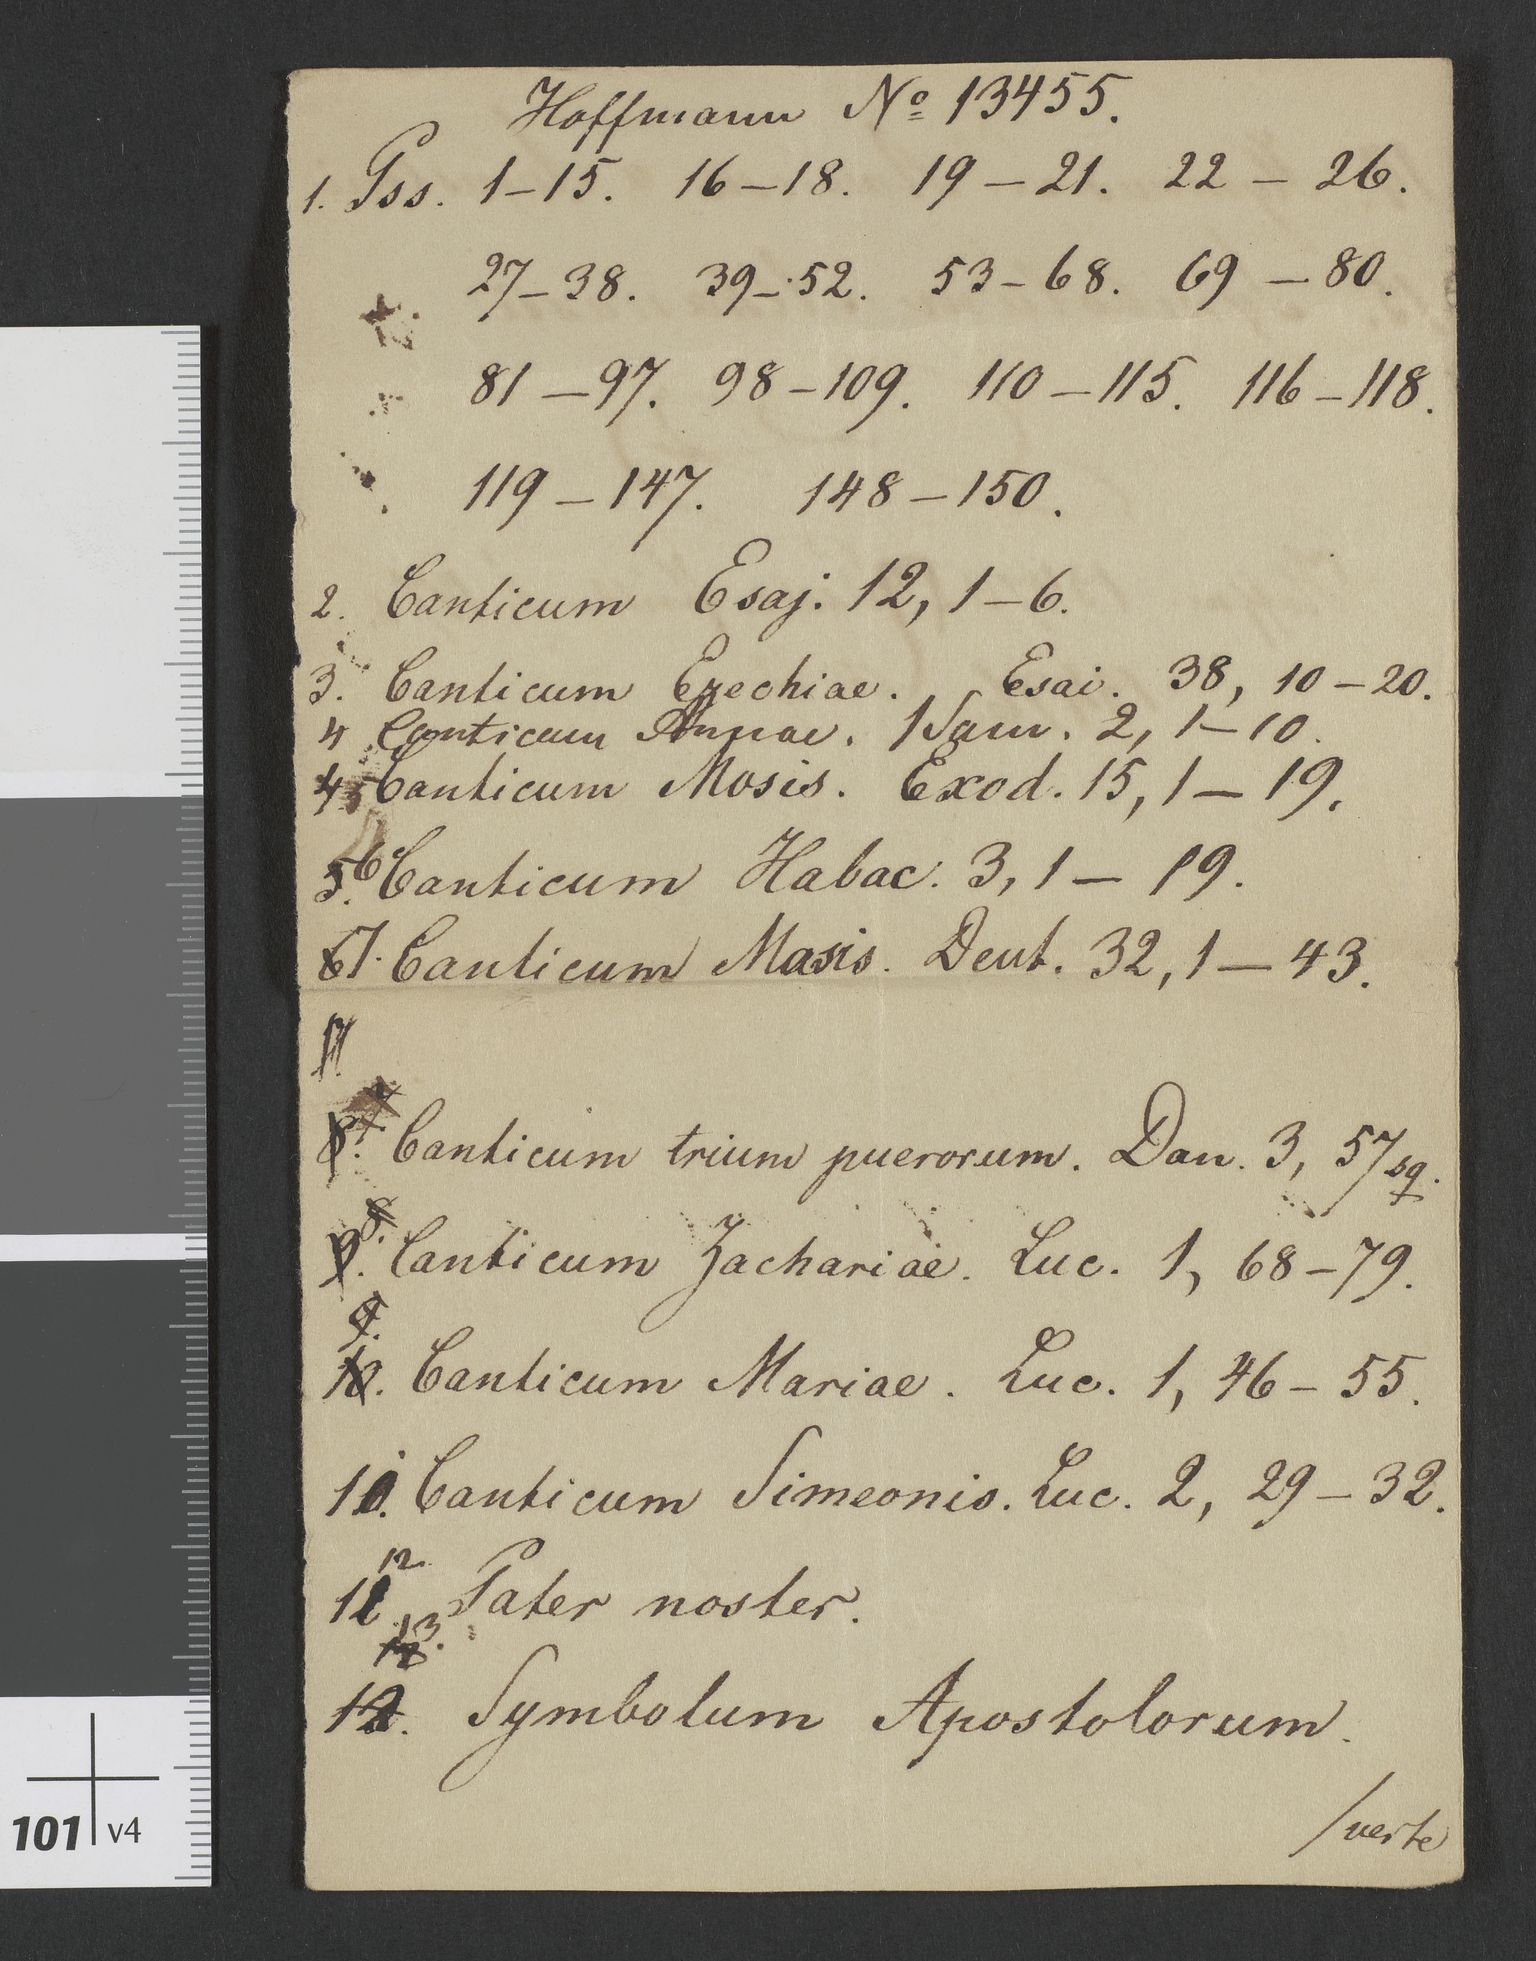 Hoffmann No 13455.
1. Pss. 1–15. 16–18. 19–21. 22–26.
27–38. 39–52. 53–68. 69–80.
81–97. 98–109. 110–115. 116–118.
119–147. 148–150.
2. Canticum Esaj. 12, 1–6.
3. Canticum Ezechiae. Esai. 38, 10–20.
4 Canticum Annae. 1 Sam. 2, 1–10.
4 5 Canticum Mosis. Exod. 15, 1–19.
5. 6 Canticum Habac. 3, 1–19.
6 7. Canticum Mosis. Deut. 32, 1–43.
8. Canticum trium puerorum. Dan. 3, 57 sq.
9. 8. Canticum Zachariae. Luc. 1, 68–79.
9.
10. Canticum Mariae. Luc. 1, 46–55.
Canticum Simeonis. Luc. 2, 29–32.
12
Pater noster.
13.
12. Symbolum Apostolorum.
/verte
101 v4